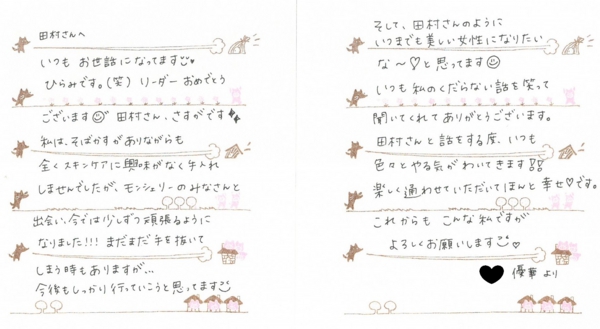 田村さんへ
いつも お世話になってます♥
ひらみです。(笑) リーダー おめでとう
ございます 田村さん、さすがです
私は、そばかすがありながらも
全くスキンケアに興味がなく手入れ
しませんでしたが、モンシェリーのみなさんと
出会い、今では少しずつ頑張るように
なりました!!! まだまだ手を抜いて
しまう時もありますが...
今後もしっかり行っていこうと思ってます
そして、田村さんのように
いつまでも美しい女性になりたい
な〜♡と思ってます
いつも私のくだらない話を笑って
聞いてくれてありがとうございます。
田村さんと話をする度、いつも
色々とやる気がわいてきます!!
楽しく通わせていただいてほんと幸せ♡です。
これからも こんな私ですが
よろしくお願いします♡
♥ 優華 より